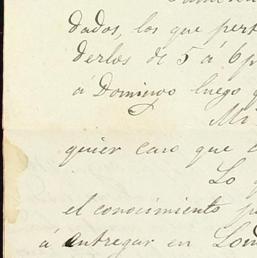 dados, los que pert
derlos de 5 á 6 p
á Domingo luego q
Mi
quier caso que
Lo q
el conocimiento p
á entregar en Lon